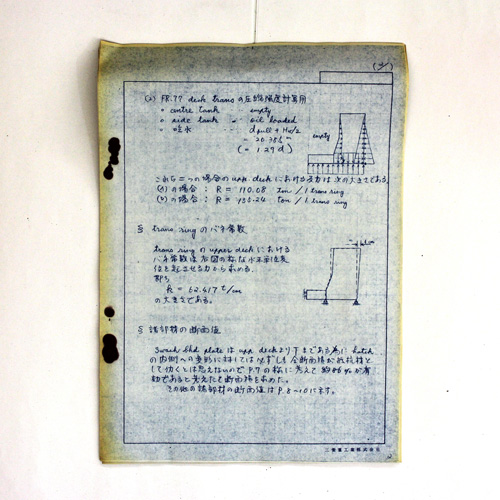 (2) FR.77 deck trans の圧縮強度計算用
○ centre tank ---- empty
○ side tank ---- oil loaded
○ 吃水 ---- d full + Hw/2
= 20.385 m
(= 1.29 d)
empty
これら二つの場合の upp. deck における反力は次の大きさである。
(a) の場合 : R = 110.08 ton / 1 trans ring
(b) の場合 : R = 135.24 ton / 1 trans ring
§ trans. ring のバネ常数
trans ring の upper deck における
バネ常数は右図の様な水平単位変
位を起させる力から求める.
即ち
k = 62.417 t/cm
の大きさである。
§ 諸部材の断面値
Swash bhd plate は upp. deck より下まである為に hatch
の内側への変形に対しては必ずしも全断面積が抵抗材と
して効くとは思えないので P.7 の様に考えて 約86%が有
効であると考えた断面積を求めた。
その他の諸部材の断面値は P.8~10 に示す。
三菱重工業株式会社